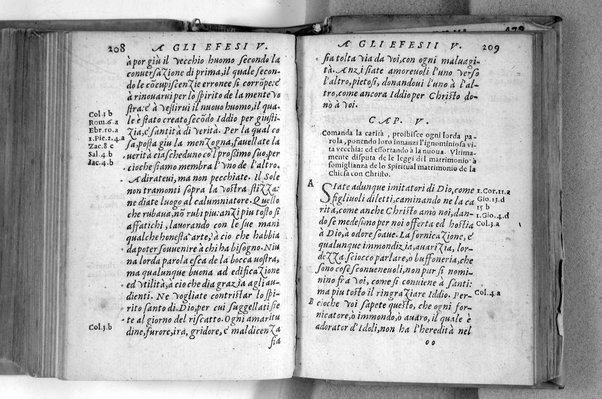 208 A GLI EFESI V.
à por giù il vecchio huomo secondo la
conversatione di prima, il quale secon-
do le cócupiscenzie erronee si corrópe: è
à rinouarui per lo spirito de la mente vo
stra: è à vestirui il nuouo huomo, il qua-
Col. 3 b
le è stato creato secódo Iddio per giusti-
Rom. 6. a
zia, è santità di verità. Per la qual co
Ebr. 10. a
sa, posta giu la menzogna, fauellate la
1. Pie. 2. 4. a
Zac. 8 c
verità ciascheduno col prossimo suo, per
Sal. 4. b
cio che siamo membra l'vno de l'altro.
Iac. 4. b
Adirateui, ma non pecchiate. Il Sole
non tramonti sopra la vostra stizza:
ne diate luogo al calumniatore. Quello
che rubaua, no rubi piu: anzi piu tosto si
affatichi, lauorando con le sue mani
qualche honesta arte, à cio che habbia
da poter souuenire à chi ha bisogno. Niu
na lorda parola esca de la bocca vostra,
ma qualunque buona ad edificazione
ed vtilità, à cio che dia grazia agli au-
dienti. Ne vogliate contristar lo spi-
rito santo di Dio, per cui suggellati sie
te al giorno del riscatto. Ogni amaritu
Col. 3. b
dine, furore, ira, gridore, è maldicenza
sia
A GLI EFESII V. 209
sia tolta via da voi, con ogni maluagi-
tà. Anzi siate amoreuoli l'uno verso
l'altro, pietosi, donandoui l'uno à l'al-
tro, come ancora Iddio per Christo do-
nò à voi.
CAP. V.
Comanda la carità, proibisce ogni lorda pa
rola, ponendo loro innanzi l'ignominiosa vi
ta vecchia: ed essortando à la nuoua. Vltima-
mente disputa de le leggi del matrimonio à
somiglianza de lo Spiritual matrimonio de la
Chiesa con Christo.
A
State adunque imitatori di Dio, come
1. Cor. 11. a
figliuoli diletti, caminando ne la ca
Gio. 13. d
15 b
rità, come anche Christo amo noi, dan-
1. Gio. 4. d
do se medesimo per noi offerta ed hostia
Col. 3. a
à Dio, à odore soaue. La fornicazione, è
qualunque immondizia, auarizia, lor-
dezza, sciocco parlare, o buffoneria, che
sono cose sconueneuoli, non pur si nomi-
nino fra voi, come si conuiene à santi:
ma piu tosto il ringraziare Iddio. Per-
Col. 4. a
B
cio che voi sapete questo, che ogni for-
nicatore, ò immondo, ò auaro, il quale è
adorator d'Idoli, non ha l'heredità nel
oo